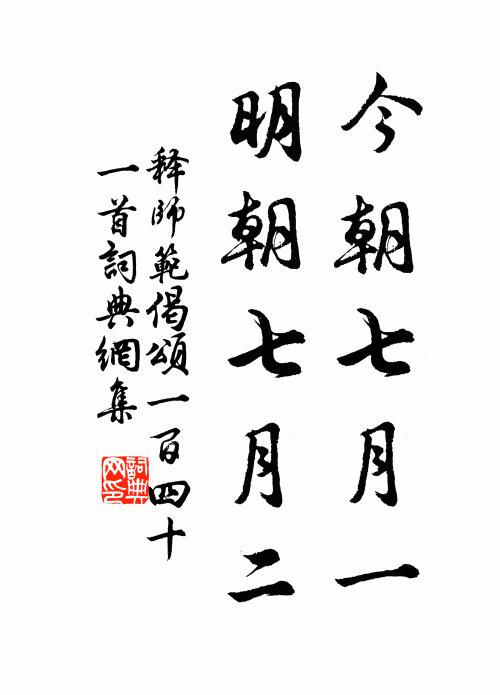 今朝七月一
明朝七月二
释師範偈頌一百四十
一首詞典網集
詞典
网印